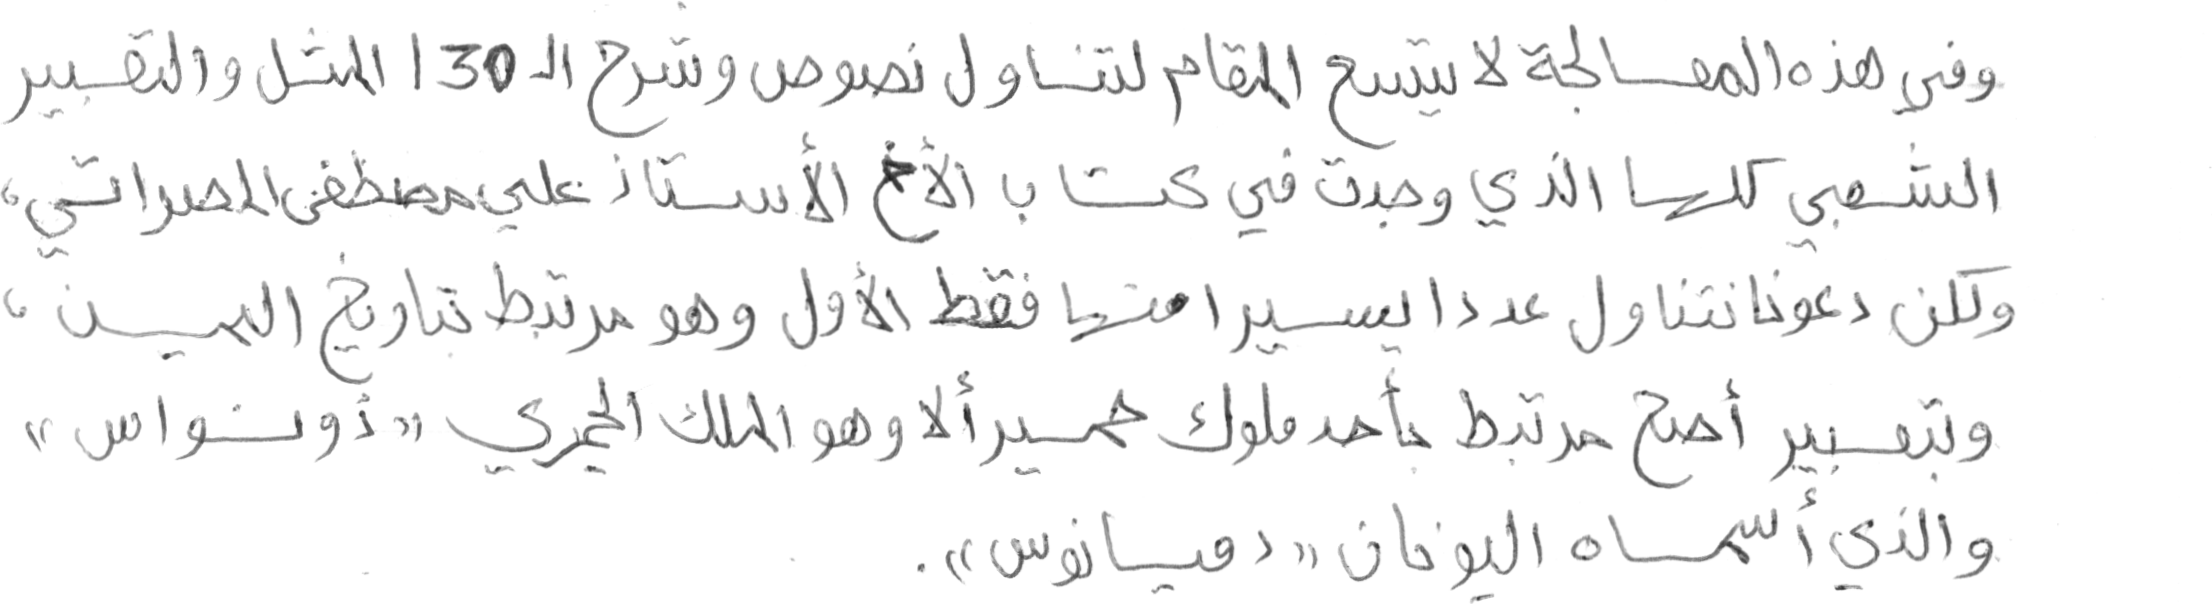 وفي هذه المعالجة لا يتسع المقام لتناول نصوص وشرح الـ 130 المثل والتعبير
الشعبي كلها الذي وجدت في كتاب الأخ الأستاذ علي مصطفى المصراتي،
ولكن دعونا نتناول عددا يسيرا منها فقط الأول وهو مرتبط بتاريخ اليمن،
وبتعبير أصح مرتبط بأحد ملوك حمير ألا وهو الملك الحميري «ذو نواس»
والذي أسماه اليونان «دميانوس».